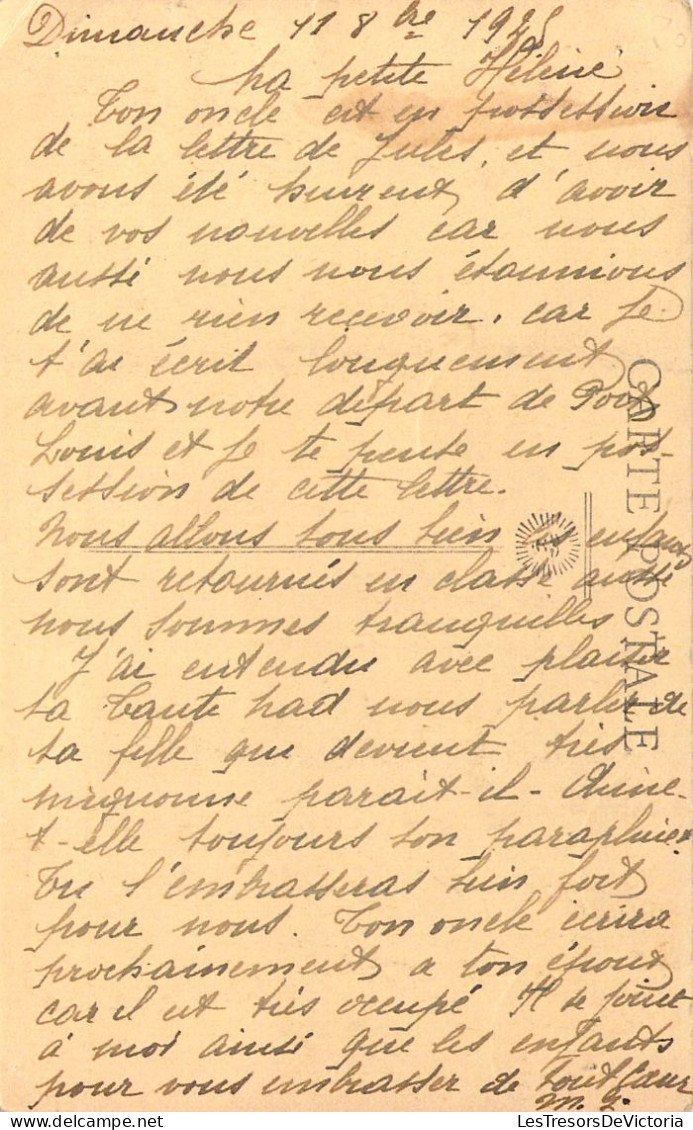 Dimanche 11 8bre 1925
Ma petite Hélène
Ton oncle est en possession
de la lettre de Jules, et nous
avons été heureux d'avoir
de vos nouvelles car nous
aussi nous nous étonnions
de ne rien recevoir. car Je
t'ai écrit longuement
avant notre départ de Port
Louis et Je te pense en pos-
session de cette lettre.
Nous allons tous bien enfants
sont retournés en classe aussi
nous sommes tranquilles
J'ai entendu avec plaisir
ta Tante nous parler de
ta fille qui devient très
mignonne parait-il - Aime-
t-elle toujours ton parapluie
Tu l'embrasseras bien fort
pour nous. Ton oncle écrira
prochainement a ton époux
car il est très occupé Il se joint
à moi ainsi que les enfants
pour vous embrasser de tout Cœur
CARTE POSTALE
© LesTresorsDeVictoria
LesTresorsDeVictoria.com